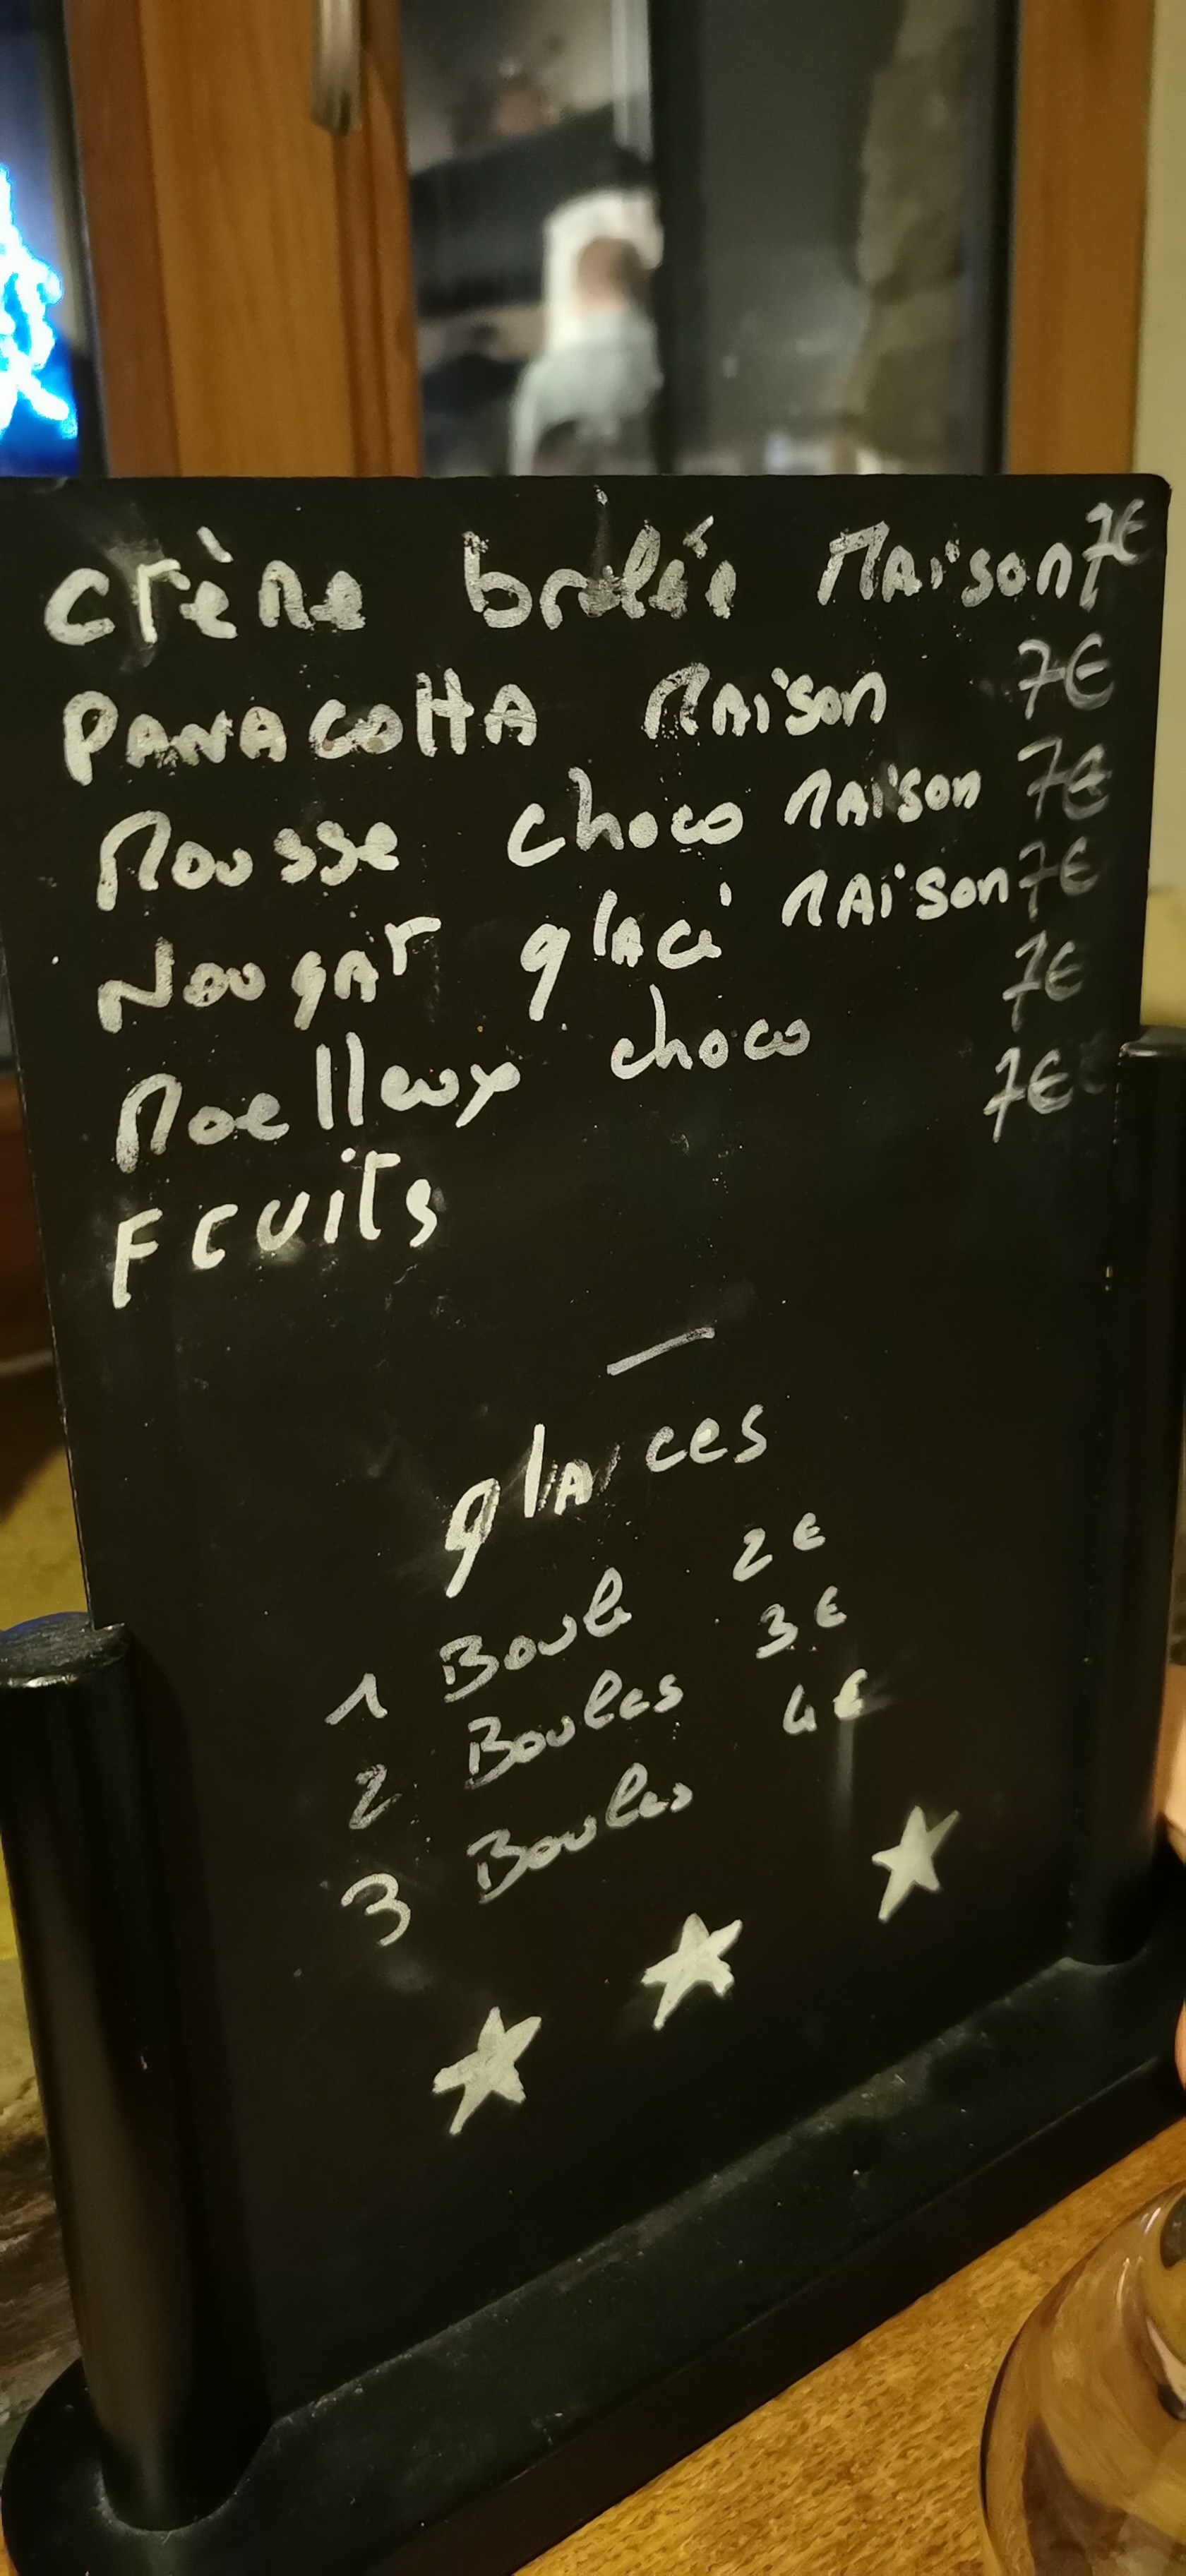 crème brulée Maison 7€
PANACOttA MAison 7€
Mousse choco MAison 7€
Nougat glacé MAison 7€
Moelleux choco 7€
Fruits 7€
glaces
1 Boule 2€
2 Boules 3€
3 Boules 4€